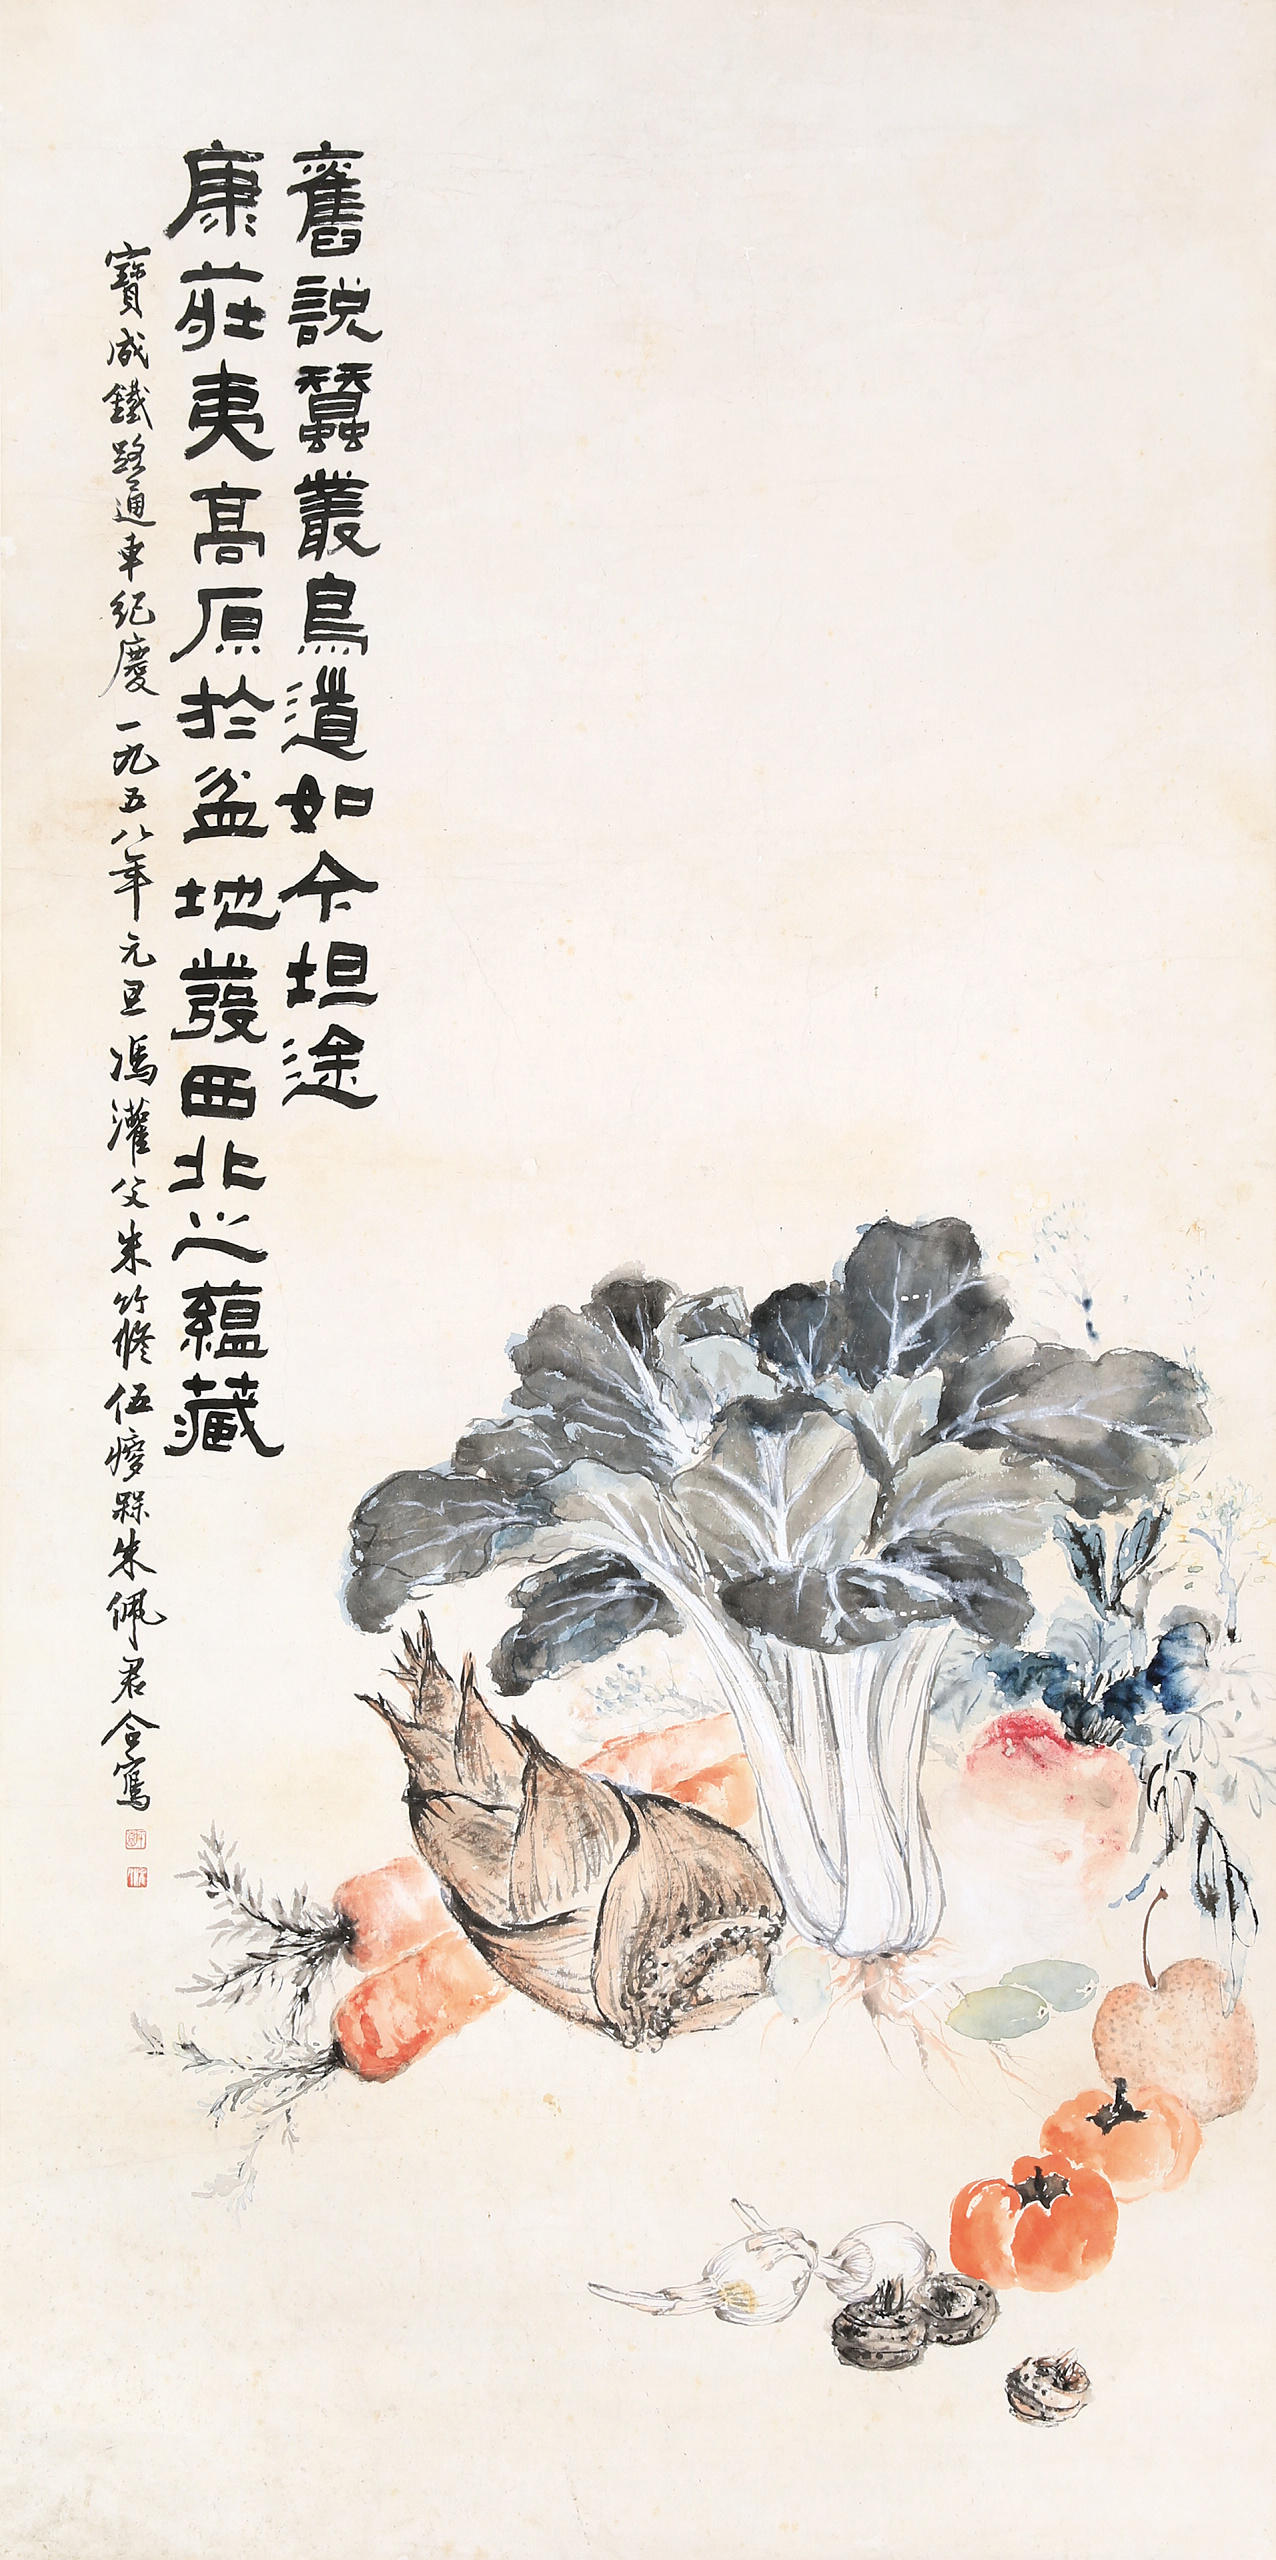 舊說蠶叢鳥道如今坦途
康莊夷高原於盆地發西北之蘊藏
寶成鐵路通車紀慶一九五八年元旦馮灌父朱竹修伍瘦梅朱佩君合寫